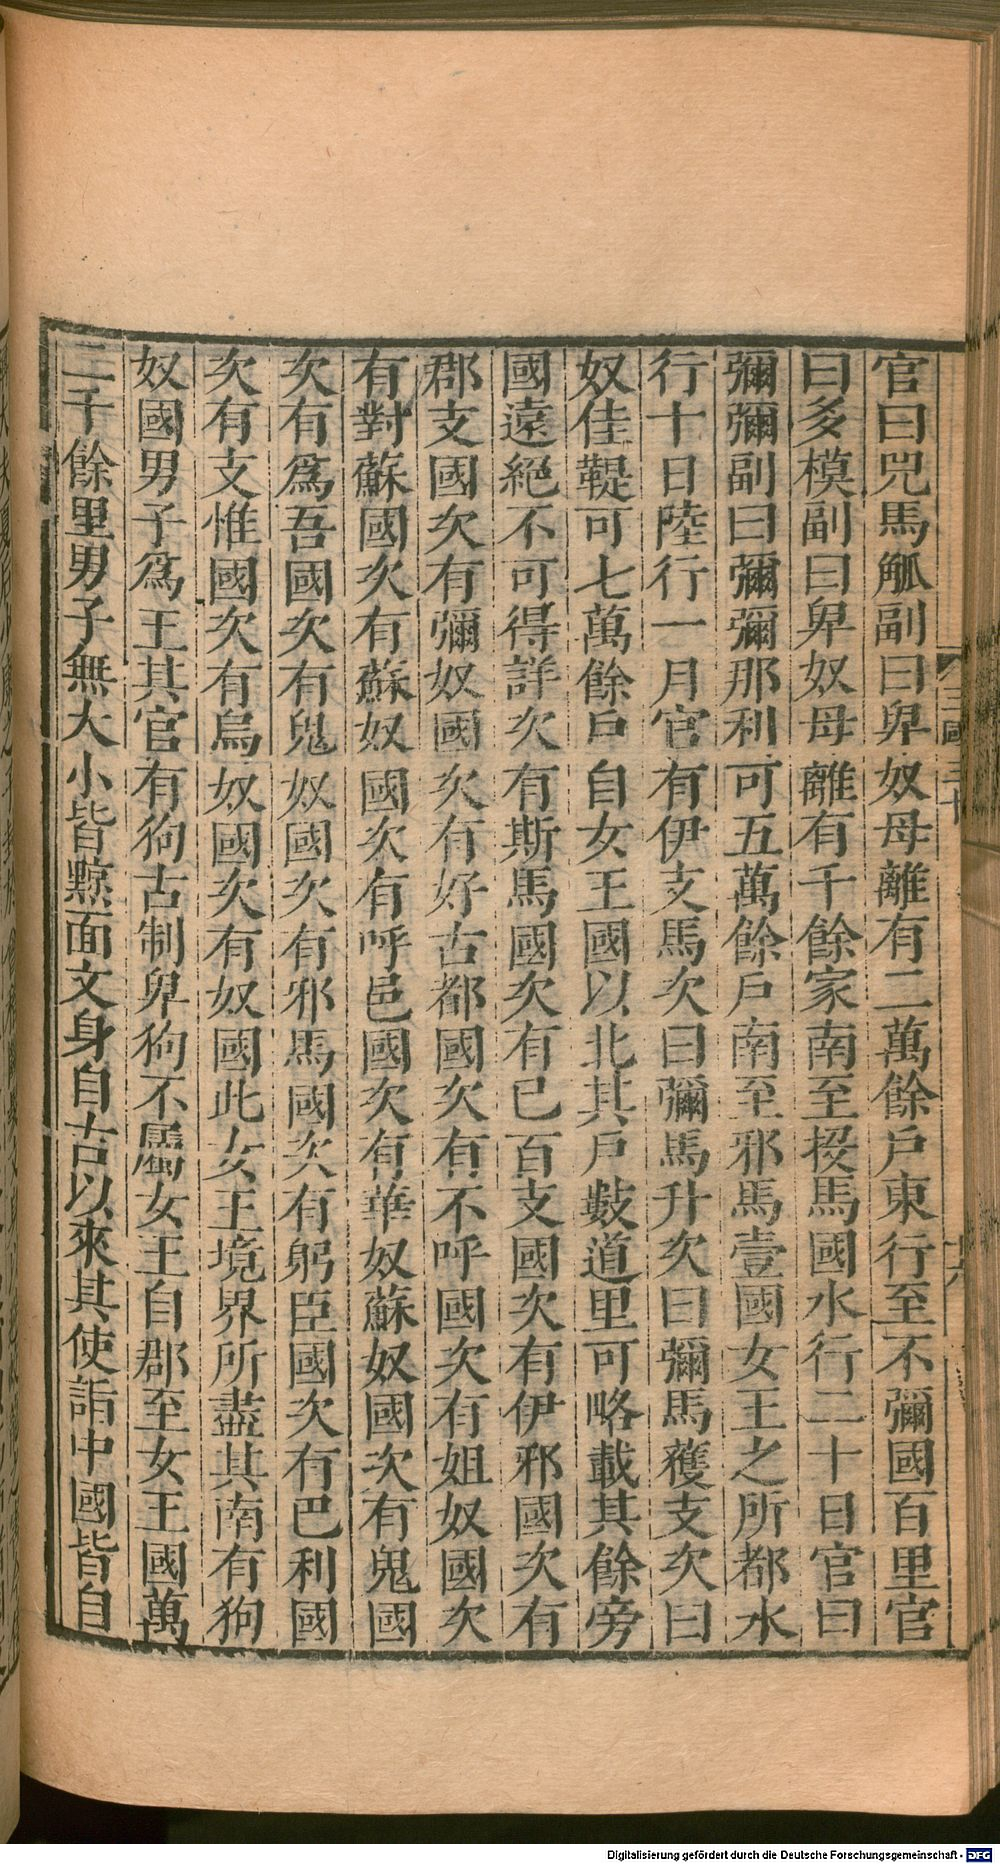 官曰兕馬觚副曰卑奴母離有二萬餘戶東行至不彌國百里官
曰多模副曰卑奴母離有千餘家南至投馬國水行二十日官曰
彌彌副曰彌彌那利可五萬餘戶南至邪馬壹國女王之所都水
行十日陸行一月官有伊支馬次曰彌馬升次曰彌馬獲支次曰
奴佳鞮可七萬餘戶自女王國以北其戶數道里可略載其餘旁
國遠絕不可得詳次有斯馬國次有已百支國次有伊邪國次有
郡支國次有彌奴國次有好古都國次有不呼國次有姐奴國次
有對蘇國次有蘇奴國次有呼邑國次有華奴蘇奴國次有鬼國
次有爲吾國次有鬼奴國次有邪馬國次有躬臣國次有巴利國
次有支惟國次有烏奴國次有奴國此女王境界所盡其南有狗
奴國男子爲王其官有狗古制卑狗不屬女王自郡至女王國萬
二千餘里男子無大小皆黥面文身自古以來其使詣中國皆自
三國三十
六
Digitalisierung gefördert durch die Deutsche Forschungsgemeinschaft - DFG